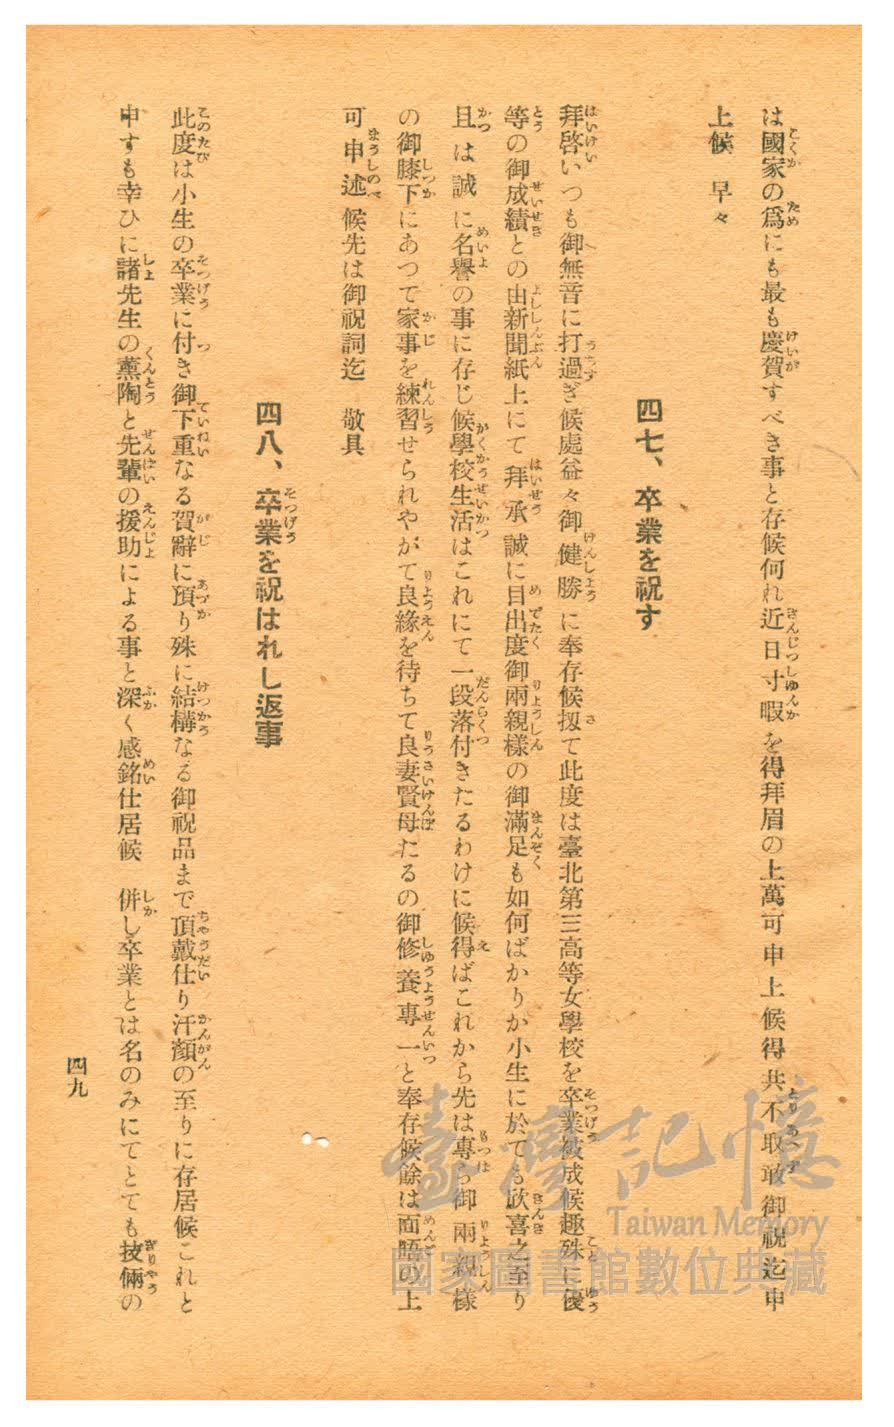 は國家の爲にも最も慶賀すべき事と存候何れ近日寸暇を得拜眉の上萬可申上候得共不取敢御祝迄申
上候　早々
四七、卒業を祝す
拜啓いつも御無音に打過ぎ候處益々御健勝に奉存候扨て此度は臺北第三高等女學校を卒業被成候趣殊に優
等の御成績との由新聞紙上にて拜承誠に目出度御兩親樣の御滿足も如何ばかりか小生に於ても欣喜之至り
且は誠に名譽の事に存じ候學校生活はこれにて一段落付きたるわけに候得ばこれから先は專ら御兩親樣
の御膝下にあつて家事を練習せられやがて良緣を待ちて良妻賢母たるの御修養專一と奉存候餘は面晤の上
可申述候先は御祝詞迄　敬具
四八、卒業を祝はれし返事
此度は小生の卒業に付き御下重なる賀辭に頂り殊に結構なる御祝品まで頂戴仕り汗顏の至りに存居候これと
申すも幸ひに諸先生の薰陶と先輩の援助による事と深く感銘仕居候　併し卒業とは名のみにてとても技倆の
四九
臺灣記憶
Taiwan Memory
國家圖書館數位典藏